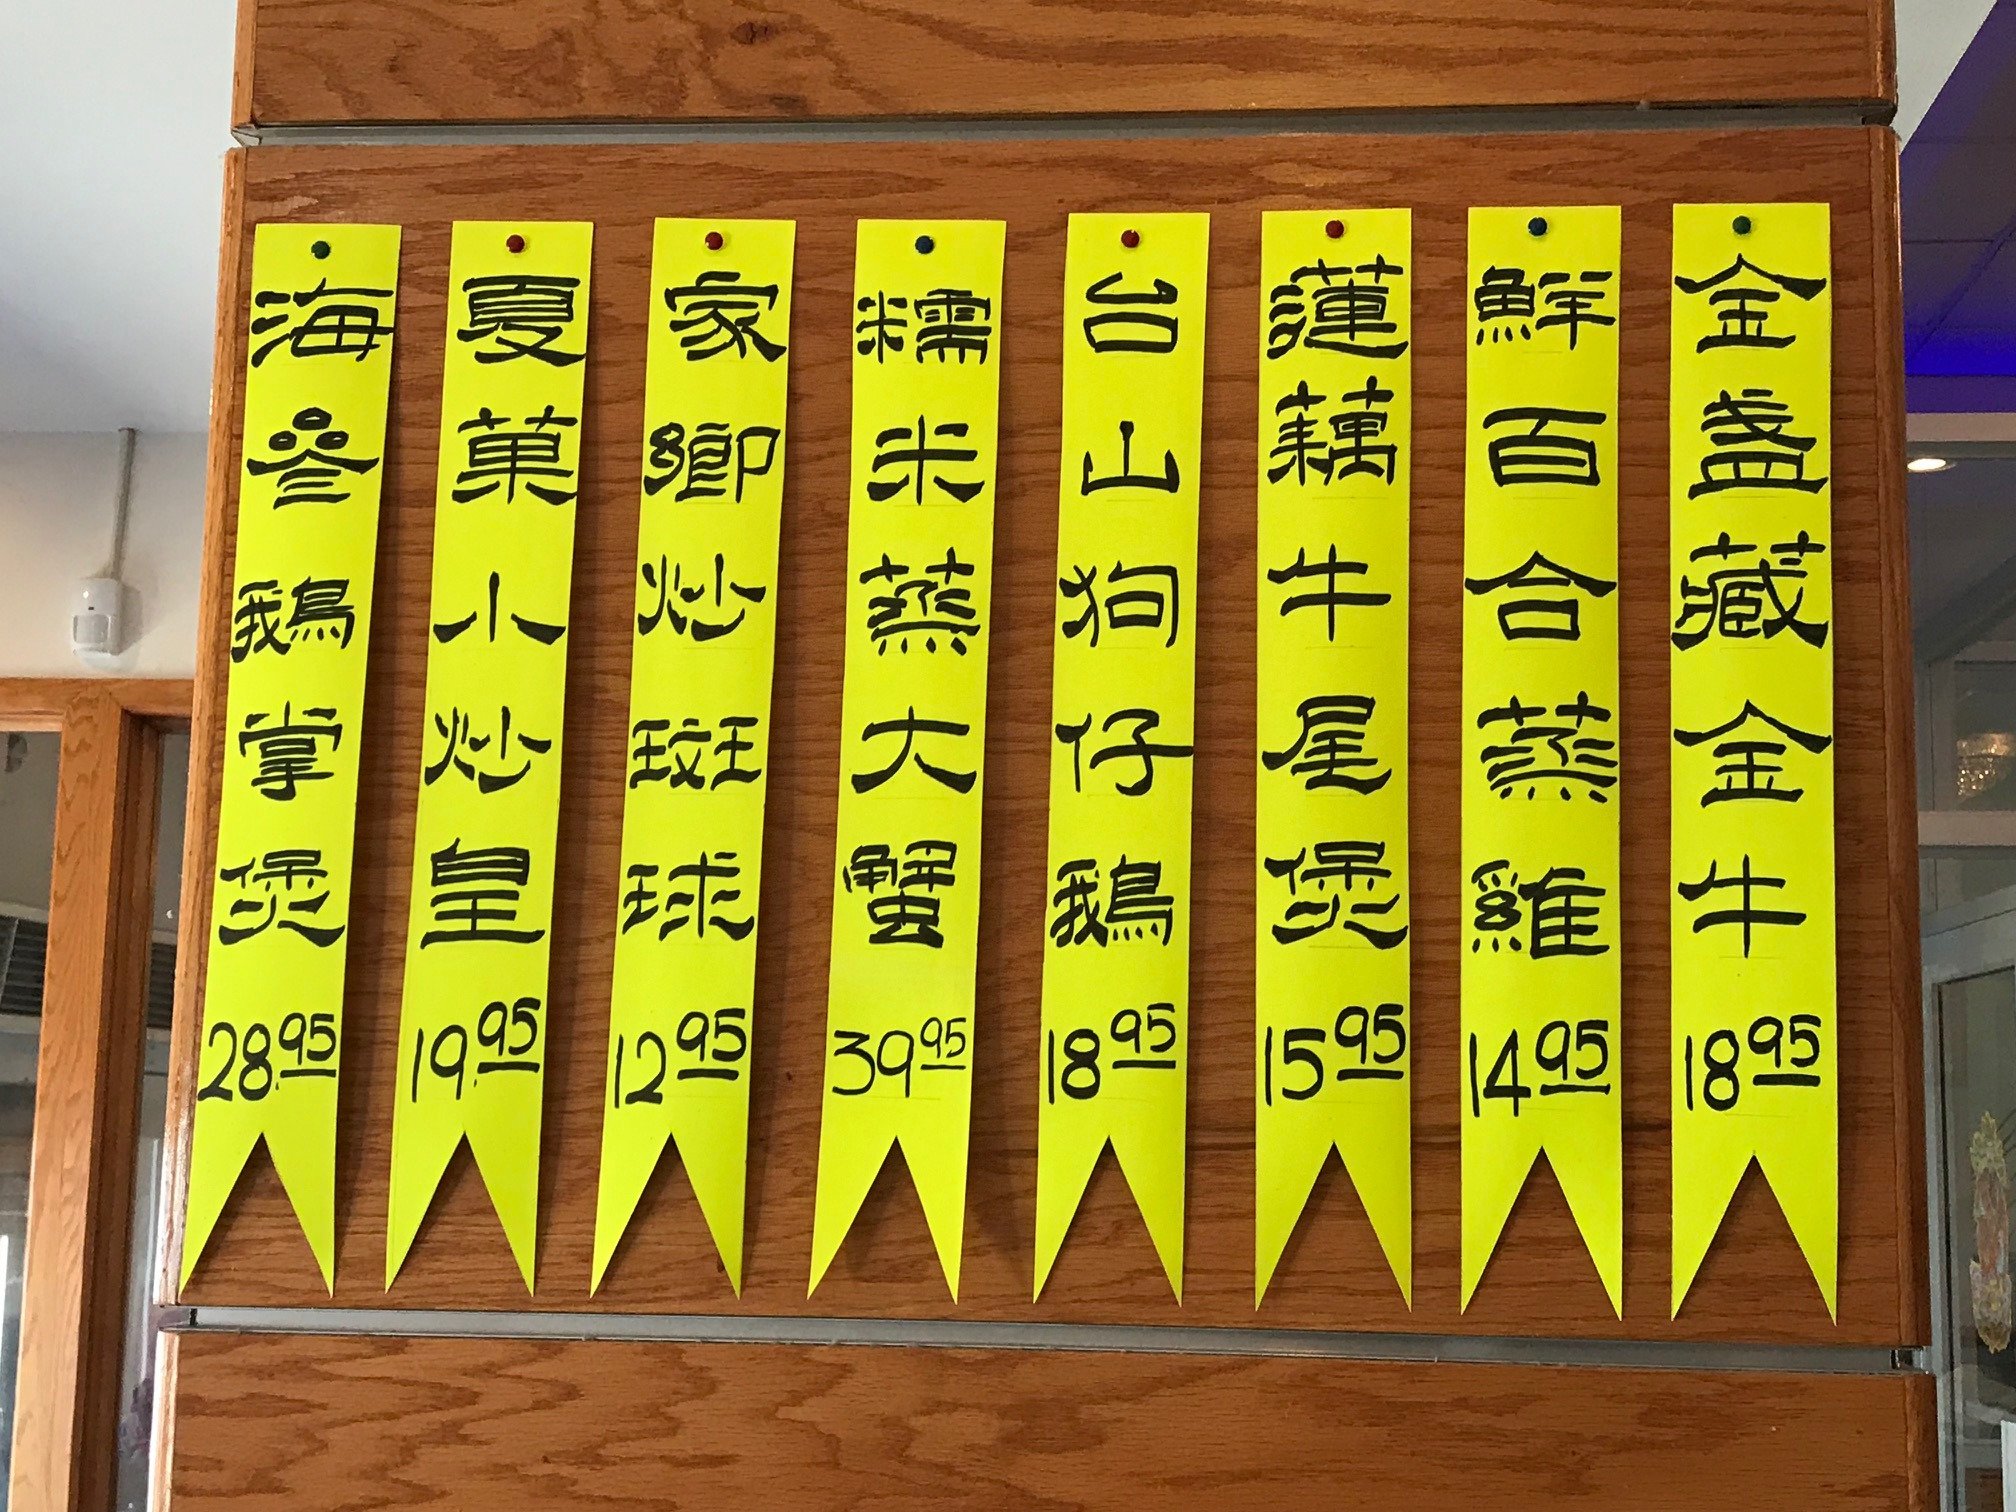 金盞藏金牛 18.95
鮮百合蒸雞 14.95
蓮藕牛尾煲 15.95
台山狗仔鵝 18.95
糯米蒸大蟹 39.95
家鄉炒斑球 12.95
夏菓小炒皇 19.95
海參鵝掌煲 28.95